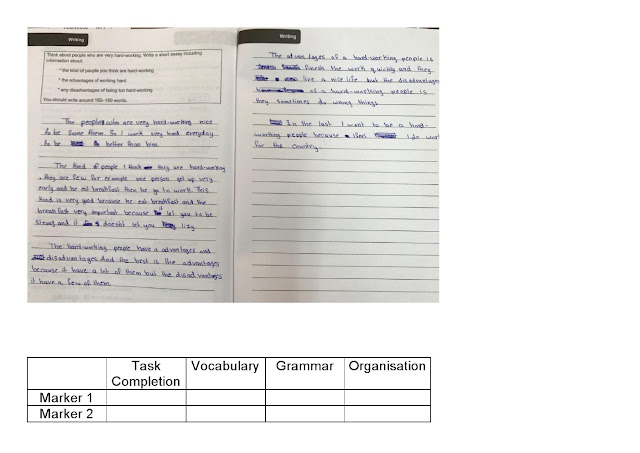 Writing
Think about people who are very hard-working. Write a short essay including
information about:
* the kind of people you think are hard-working
* the advantages of working hard
* any disadvantages of being too hard-working
You should write around 160–180 words.
The people who are very hard-working nice
to be same them. So I work very hard everyday
to be better than him.
The kind of people I think they are hard-working
, they are few for example one person get up very
early and he eat breakfast then he go to work. This
kind is very good because he eat breakfast and the
breakfast very important because it let you to be
strong and it doesn't let you lizy.
The hard-working people have a advantages and
disadvantages And the best is the advantages
because it have a lot of them but the disadvantages
it have a few of them
Writing
The advantages of a hard-working people is
finesh the work quickly and they
live a nice life but the disadvantages
of a hard-working people is
they sometimes do wrong things.
In the last I want to be a hard-
working people because I do work
for the country.
Task Completion
Vocabulary
Grammar
Organisation
Marker 1
Marker 2